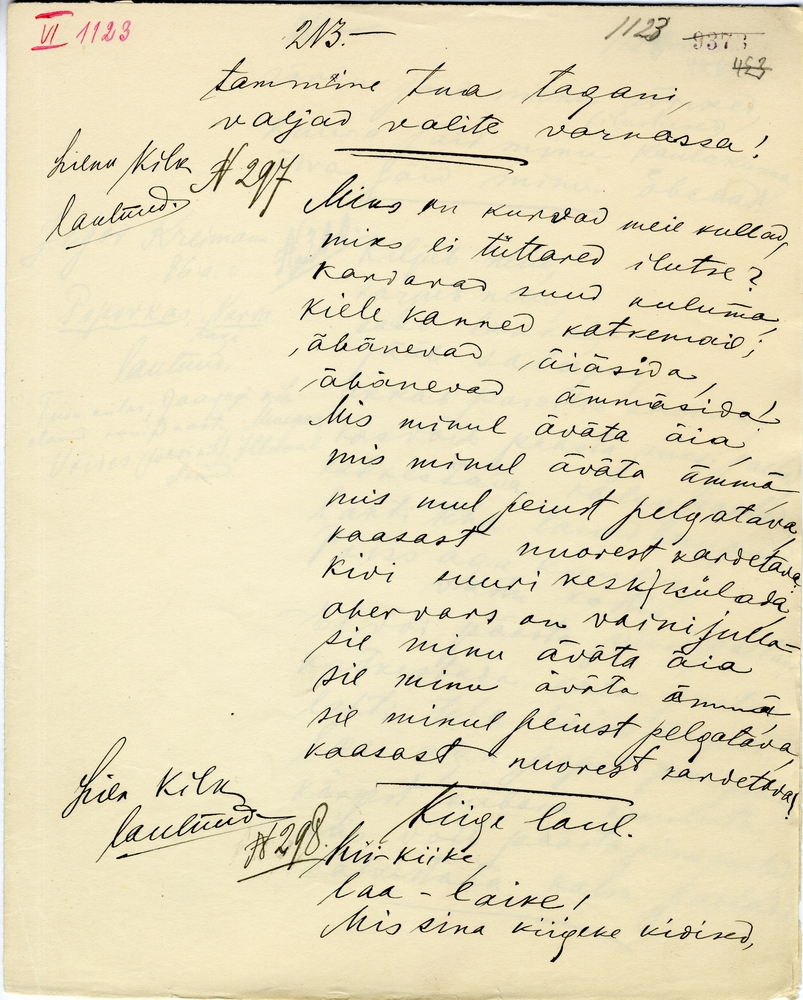 VI 1123
213.—
1123
9373
423
tammine tua tagani,
valjad valite varnassa!
Liena Kilk
laulnud.
N 297
Miks on kurvad meie kullad,
miks ei tüttared ilutse?
kardavad suud kuluma,
kiele kanned katkemaie;
äbänevad äiäsida,
äbänevad ämmäsida!
Mis minul äväta äia,
mis minul äväta ämmä
mis mul peiust pelgatava,
kaasast nuorest kardetava?
kivi suuri kesk külada,
ohervars on vainijulla –
sie minu äväta äia
sie minu äväta ämmä
sie minul peiust pelgatava,
kaasast nuorest kardetava!
Lien Kilk
laulnud
N 298.
Kiige laul.
Kii-kiike,
laa-laike!
Mis sina kiigeke kidised,